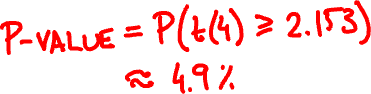 P-VALUE = P(t(4) ≥ 2.153)
≈ 4.9%